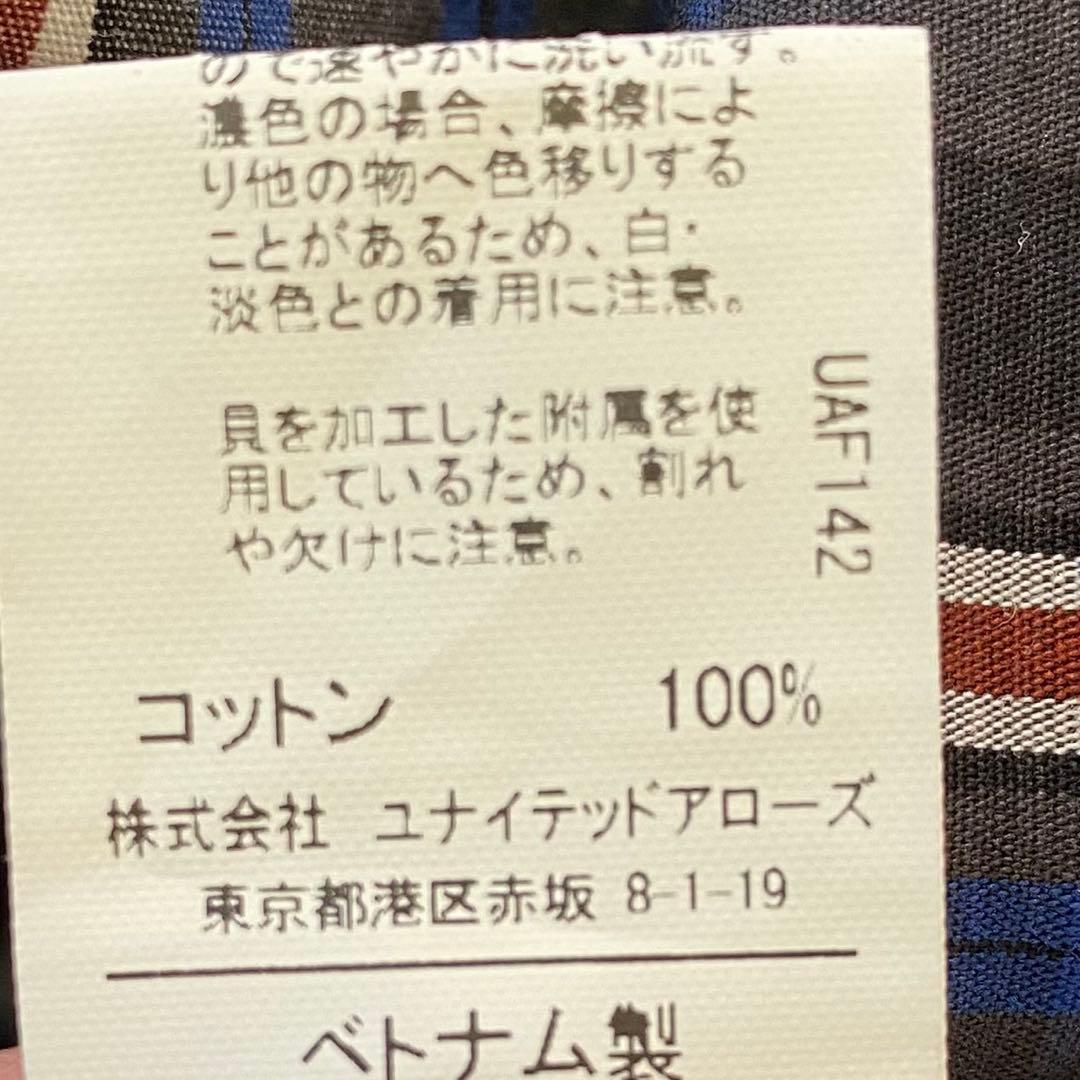 ので速やかに洗い流す。
濃色の場合、摩擦によ
り他の物へ色移りする
ことがあるため、白・
淡色との着用に注意。
貝を加工した附属を使
用しているため、割れ
や欠けに注意。
UAF142
コットン 100%
株式会社 ユナイテッドアローズ
東京都港区赤坂 8-1-19
ベトナム製